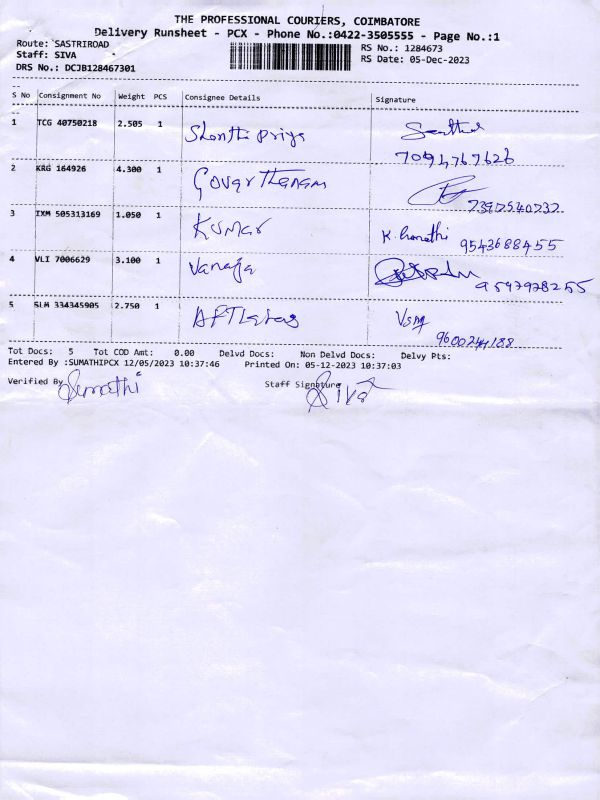 THE PROFESSIONAL COURIERS, COIMBATORE
Delivery Runsheet - PCX - Phone No.:0422-3505555 - Page No.:1
Route: SASTRIROAD
RS No.: 1284673
Staff: SIVA
RS Date: 05-Dec-2023
DRS No.: DCJB128467301
S No Consignment No Weight PCS Consignee Details Signature
1 TCG 40750218 2.505 1 Shonthi priya
7094767626
2 KRG 164926 4.300 1 Govarthanam
7397540232
3 IXM 505313169 1.050 1 Kumar K. 9543688455
4 VLI 7006629 3.100 1 Vanaja
9597978255
5 SLM 334345905 2.750 1
9600244188
Tot Docs: 5 Tot COD Amt: 0.00 Delvd Docs: Non Delvd Docs: Delvy Pts:
Entered By :SUMATHIPCX 12/05/2023 10:37:46 Printed On: 05-12-2023 10:37:03
Verified By Sumathi Staff Signature Siva